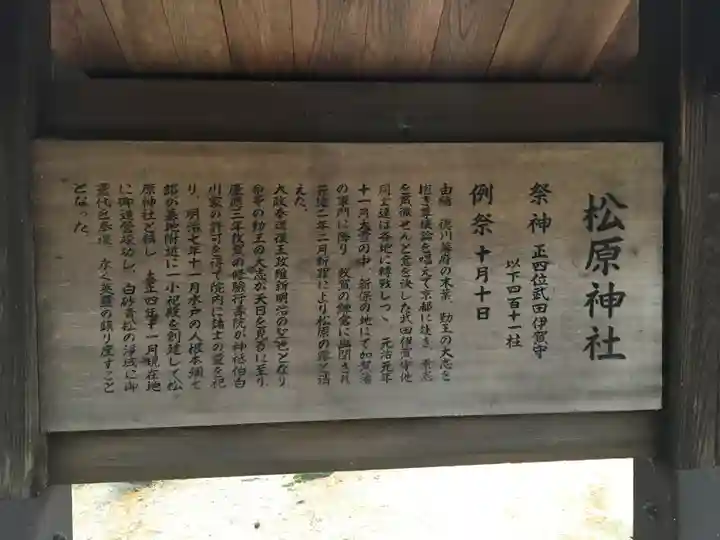 松原神社
祭神 正四位武田伊賀守
以下四百十一柱
例祭 十月十日
由緒 徳川幕府の末葉、勤王の大志を
抱き尊攘論を唱えて京都に赴き、素志
を貫徹せんと意を決した武田伊賀守他
同士達は各地に轉戦しつゝ、元治元年
十一月大雪の中、新保の地にて加賀藩
の軍門に降り、敦賀の鰊倉に幽閉され
元治二年二月斬罪により松原の露と消
えた。
大政奉還復王政維新明治の聖世となり
烈士の勤王の大志が天日を見るに至り
慶應三年敦賀の修験行壽院が神祇伯白
川家の許可を得て院内に諸士の霊を祀
り、明治七年十一月水戸の人根本彌七
郎が墓地附近に一小祝殿を創建して松
原神社と稱し、大正四年十一月現在地
に御造営竣功し、白砂青松の浄域に御
霊代を奉遷、永く英霊の鎮り座すこと
となった。